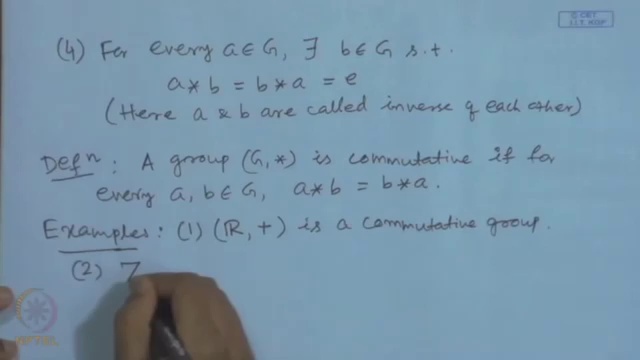 © CET
I.I.T. KGP
(4) For every a ∈ G, ∃ b ∈ G s.t.
a * b = b * a = e
(Here a & b are called inverse of each other)
Defⁿ : A group (G, *) is commutative if for
every a, b ∈ G, a * b = b * a.
Examples : (1) (ℝ, +) is a commutative group.
(2)
NPTEL